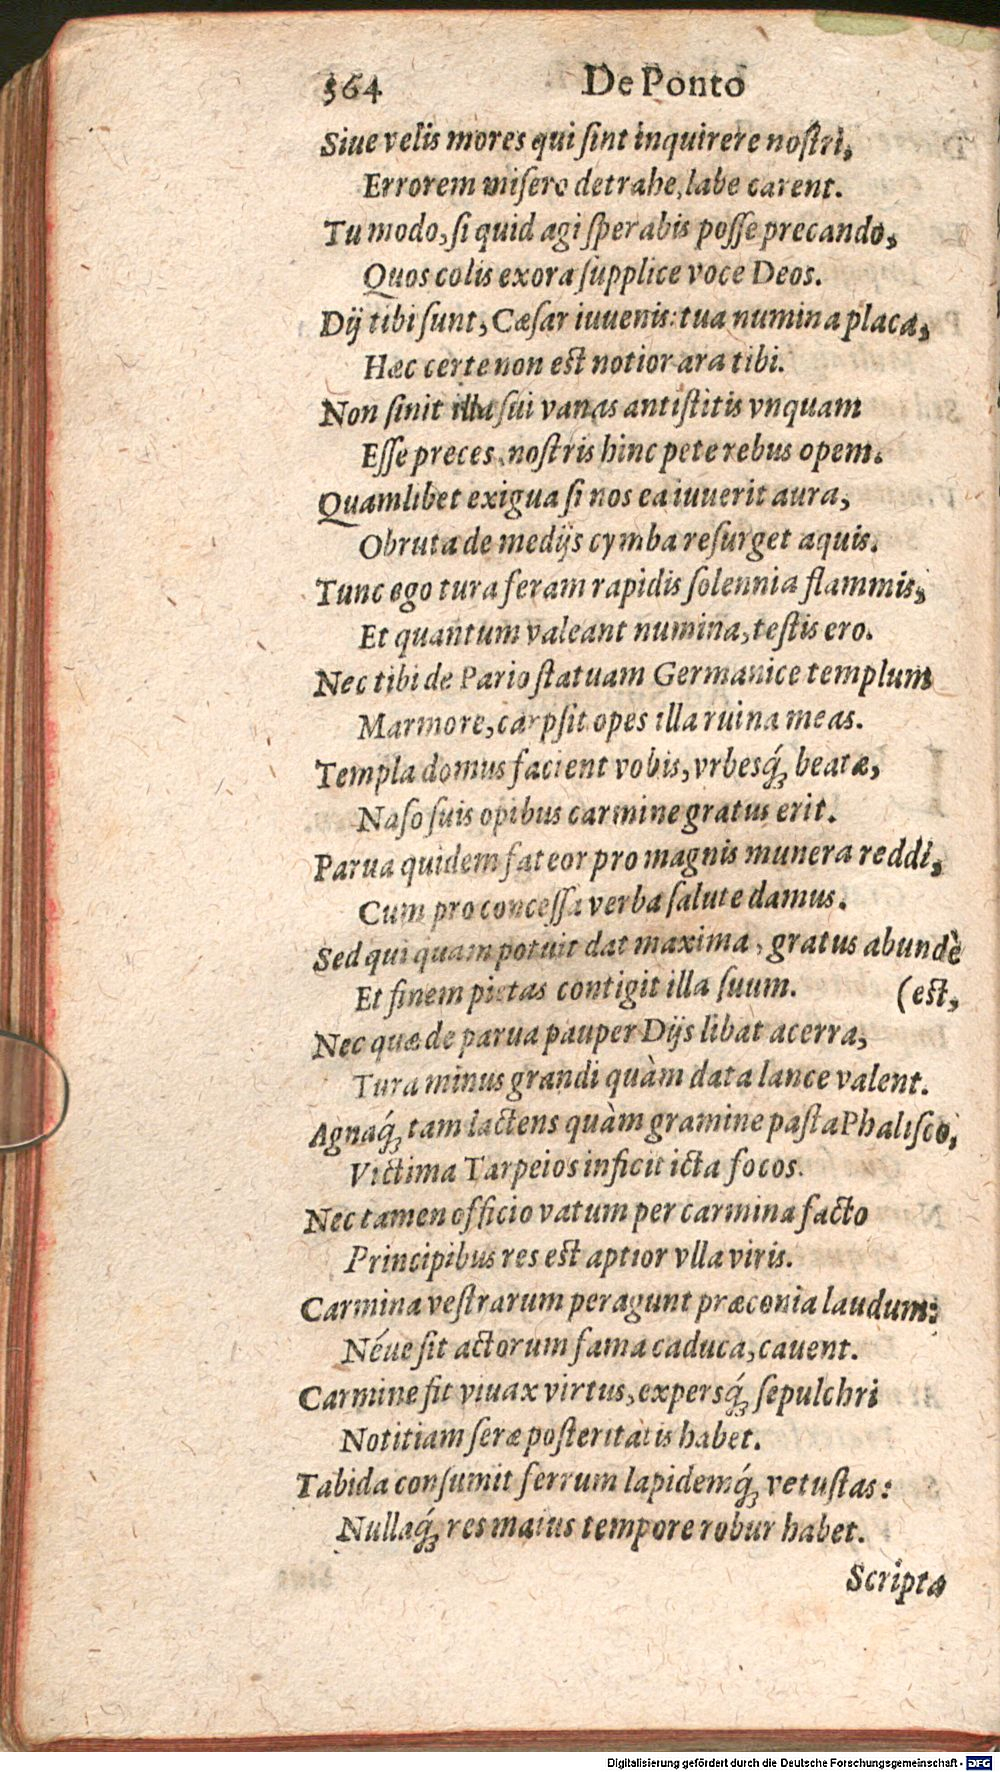 364 De Ponto
Siue velis mores qui ſint inquirere noſtri,
Errorem miſero detrahe, labe carent.
Tu modo, ſi quid agi ſperabis poſſe precando,
Quos colis exora ſupplice voce Deos.
Dij tibi ſunt, Cæſar iuuenis: tua numina placa,
Hæc certe non est notior ara tibi.
Non ſinit illa ſui vanas antiſtitis vnquam
Eſſe preces, noſtris hinc pete rebus opem.
Quamlibet exigua ſi nos ea iuuerit aura,
Obruta de medijs cymba reſurget aquis.
Tunc ego tura feram rapidis ſolennia flammis,
Et quantum valeant numina, teſtis ero.
Nec tibi de Pario ſtatuam Germanice templum
Marmore, carpſit opes illa ruina meas.
Templa domus facient vobis, vrbesq́; beatæ,
Naſo ſuis opibus carmine gratus erit.
Parua quidem fateor pro magnis munera reddi,
Cum pro conceſſa verba ſalute damus.
Sed qui quam potuit dat maxima, gratus abundè
Et finem pietas contigit illa ſuum. (est,
Nec quæ de parua pauper Dijs libat acerra,
Tura minus grandi quàm data lance valent.
Agnaq́; tam lactens quàm gramine paſta Phaliſco,
Victima Tarpeios inficit icta focos.
Nec tamen officio vatum per carmina facto
Principibus res est aptior vlla viris.
Carmina veſtrarum peragunt præconia laudum:
Néue ſit actorum fama caduca, cauent.
Carmine fit viuax virtus, expersq́; ſepulchri
Notitiam ſeræ poſteritatis habet.
Tabida conſumit ferrum lapidemq́; vetuſtas:
Nullaq́; res maius tempore robur habet.
Scripta
Digitalisierung gefördert durch die Deutsche Forschungsgemeinschaft - DFG